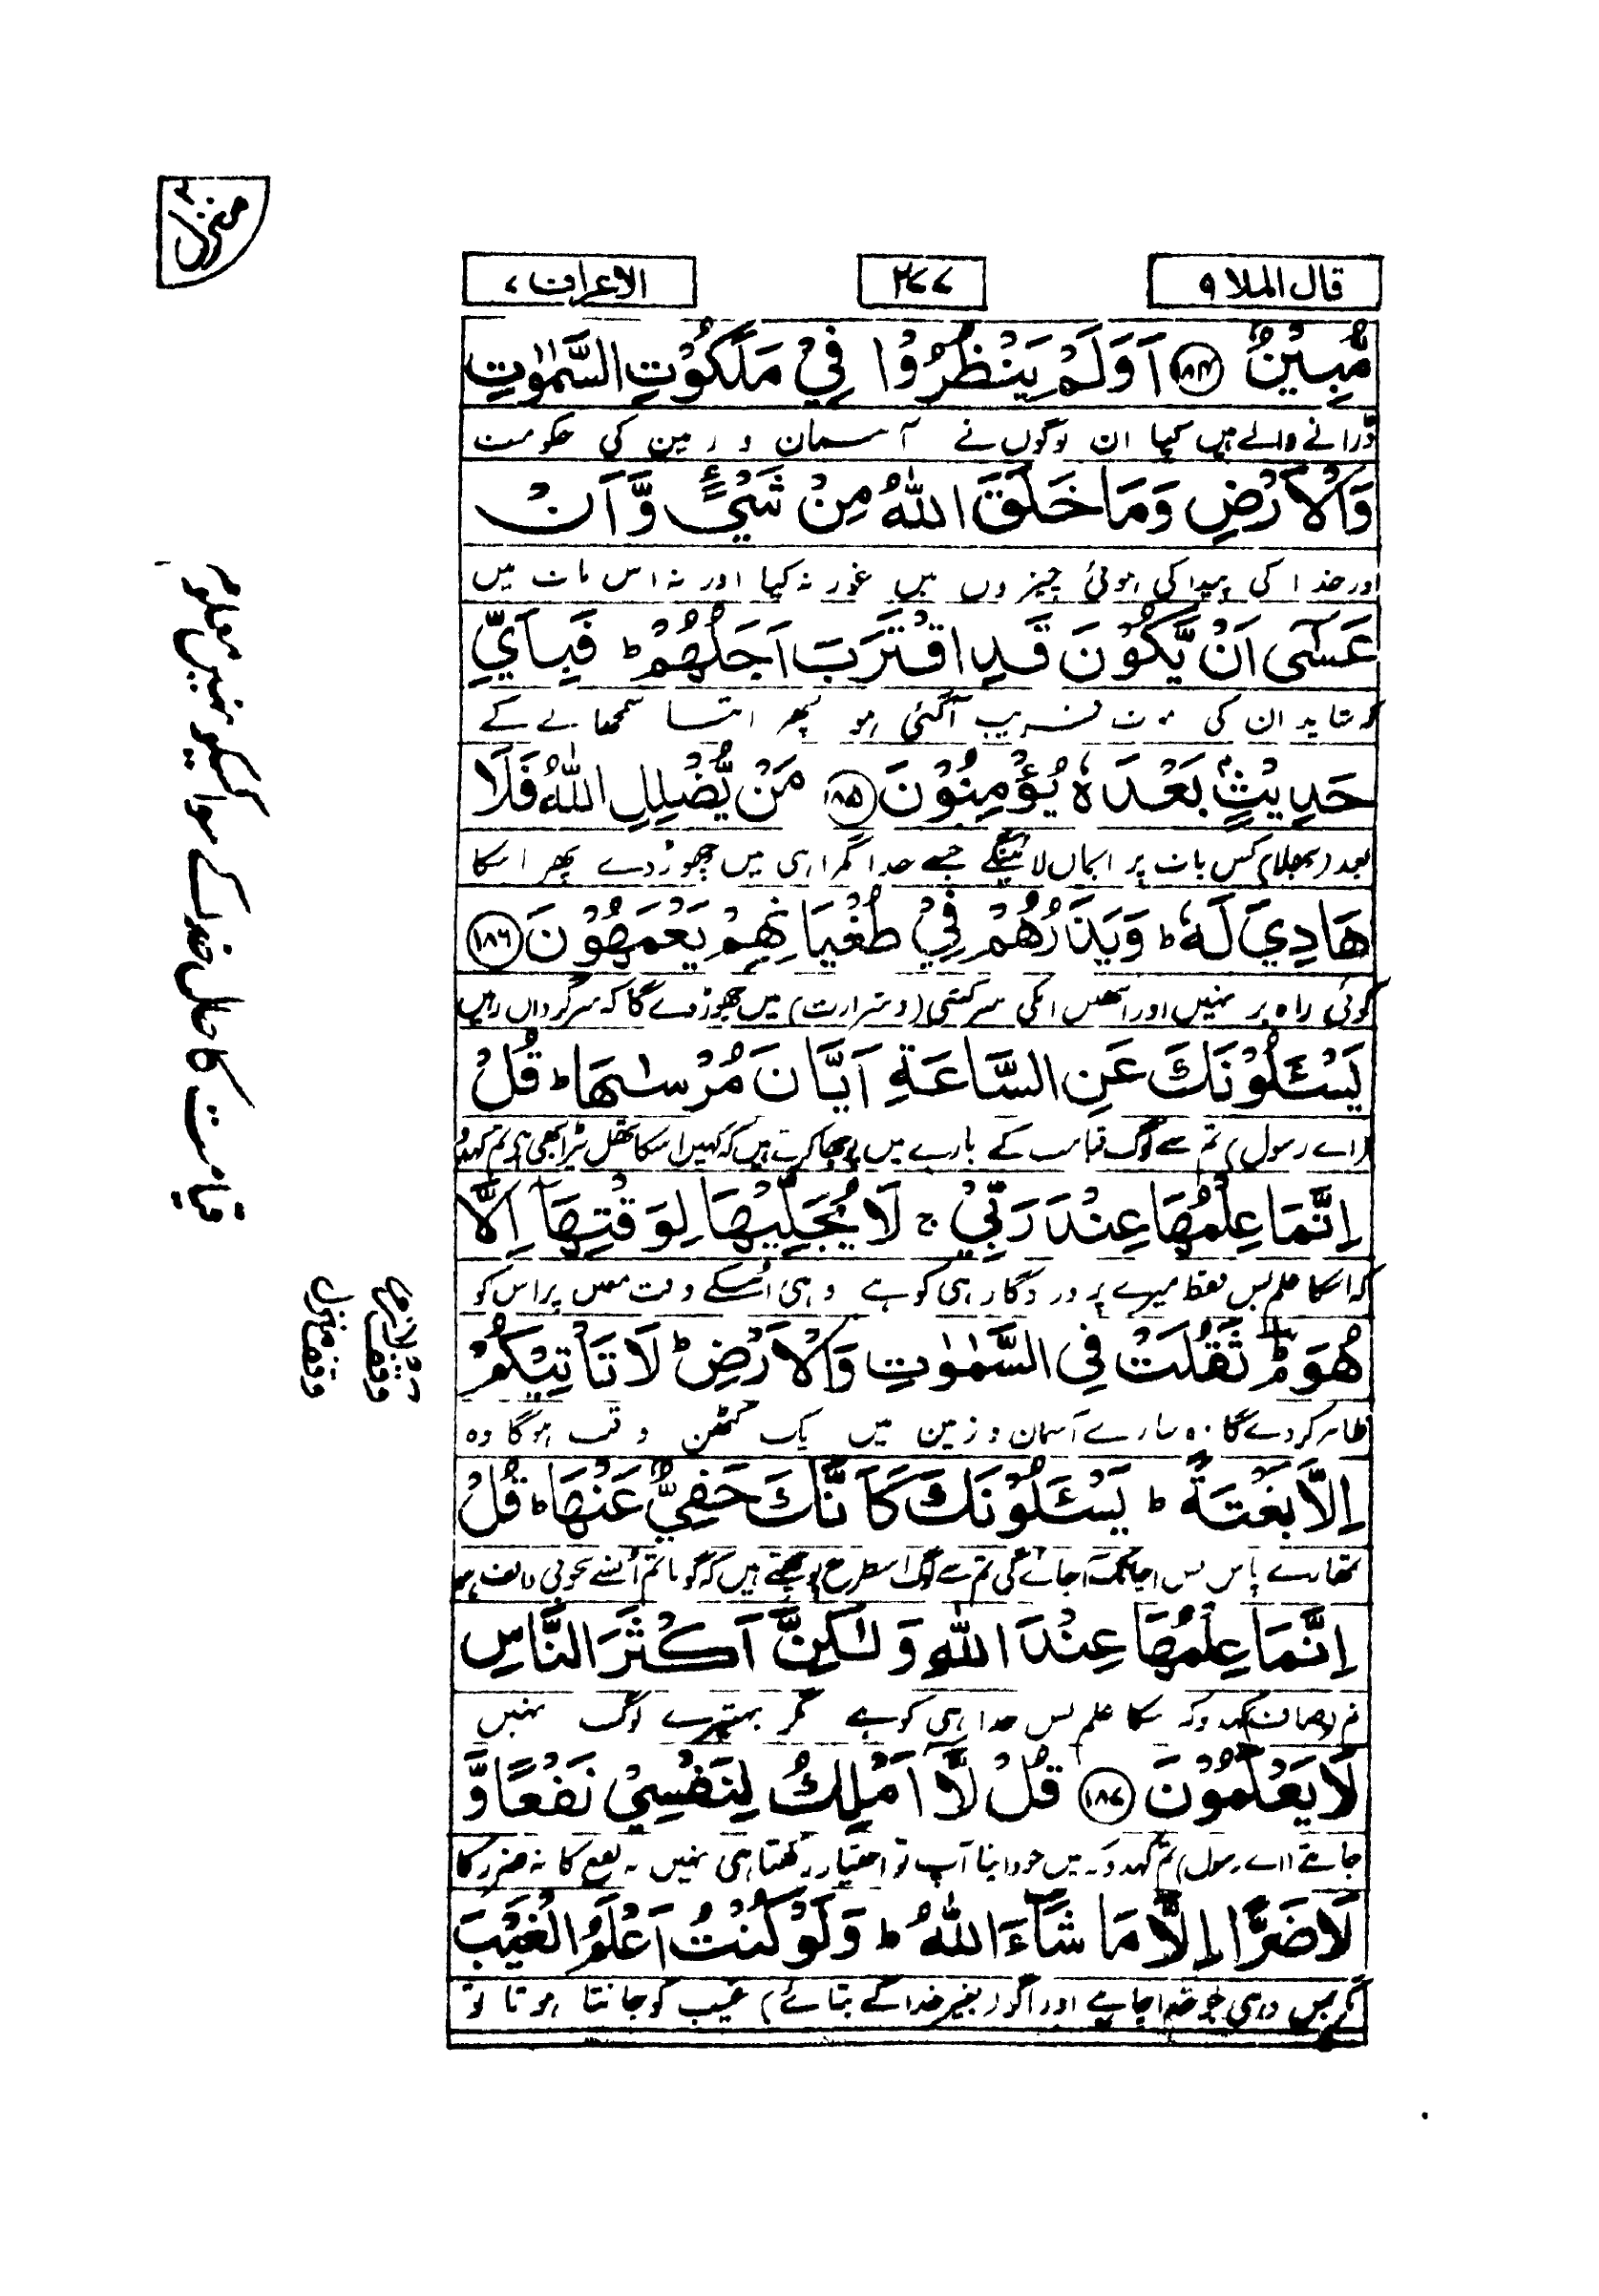 منزل ٢
قال الملا ٩
٢٧٧
الاعراف ٧
مُّبِيْنٌ ﴿١٨٤﴾ اَوَلَمْ يَنْظُرُوْا فِيْ مَلَكُوْتِ السَّمٰوٰتِ
ڈرانے والے ہیں کیا ان لوگوں نے آسمان و زمین کی حکومت
وَالْاَرْضِ وَمَا خَلَقَ اللّٰهُ مِنْ شَيْءٍ وَّاَنْ
اور خدا کی پیدا کی ہوئی چیزوں میں غور نہ کیا اور نہ اس بات میں
عَسٰٓى اَنْ يَّكُوْنَ قَدِ اقْتَرَبَ اَجَلُهُمْ ط فَبِاَيِّ
کہ شاید ان کی موت قریب آگئی ہو پھر اتنا سمجھانے کے
حَدِيْثٍۢ بَعْدَهٗ يُؤْمِنُوْنَ ﴿١٨٥﴾ مَنْ يُّضْلِلِ اللّٰهُ فَلَا
بعد (بھلا) کس بات پر ایمان لائینگے جسے خدا گمراہی میں چھوڑ دے پھر اسکا
هَادِيَ لَهٗ ط وَيَذَرُهُمْ فِيْ طُغْيَانِهِمْ يَعْمَهُوْنَ ﴿١٨٦﴾
کوئی راہ بر نہیں اور انھیں انکی سرکشی (و شرارت) میں چھوڑ دے گا کہ سرگرداں رہیں
يَسْـَٔلُوْنَكَ عَنِ السَّاعَةِ اَيَّانَ مُرْسٰىهَا ط قُلْ
(اے رسول) تم سے لوگ قیامت کے بارے میں پوچھا کرتے ہیں کہ کہیں اسکا تھل بیڑا بھی ہے تم کہدو
اِنَّمَا عِلْمُهَا عِنْدَ رَبِّيْ ج لَا يُجَلِّيْهَا لِوَقْتِهَآ اِلَّا
کہ اسکا علم بس فقط میرے پروردگار ہی کو ہے وہی اُسکے وقت معین پر اس کو
هُوَ ط ثَقُلَتْ فِي السَّمٰوٰتِ وَالْاَرْضِ ط لَا تَأْتِيْكُمْ
ظاہر کر دے گا وہ سارے آسمان و زمین میں ایک کٹھن وقت ہوگا وہ
اِلَّا بَغْتَةً ط يَسْـَٔلُوْنَكَ كَاَنَّكَ حَفِيٌّ عَنْهَا ط قُلْ
تمھارے پاس بس اچانک آجائے گی تم سے لوگ اسطرح پوچھتے ہیں کہ گویا تم اُنسے بخوبی واقف ہو
اِنَّمَا عِلْمُهَا عِنْدَ اللّٰهِ وَلٰكِنَّ اَكْثَرَ النَّاسِ
تم (صاف) کہدو کہ اسکا علم بس خدا ہی کو ہے مگر بہتیرے لوگ نہیں
لَا يَعْلَمُوْنَ ﴿١٨٧﴾ قُلْ لَّآ اَمْلِكُ لِنَفْسِيْ نَفْعًا وَّ
جانتے (اے رسول) تم کہدو کہ میں خود اپنا آپ تو اختیار رکھتا ہی نہیں نہ نفع کا نہ ضرر کا
لَا ضَرًّا اِلَّا مَا شَآءَ اللّٰهُ ط وَلَوْ كُنْتُ اَعْلَمُ الْغَيْبَ
مگر بس وہی جو خدا چاہے اور اگر (بغیر خدا کے بتائے) غیب کو جانتا ہوتا تو
قیامت کا حال خدا کے سوا کسی کو نہیں معلوم